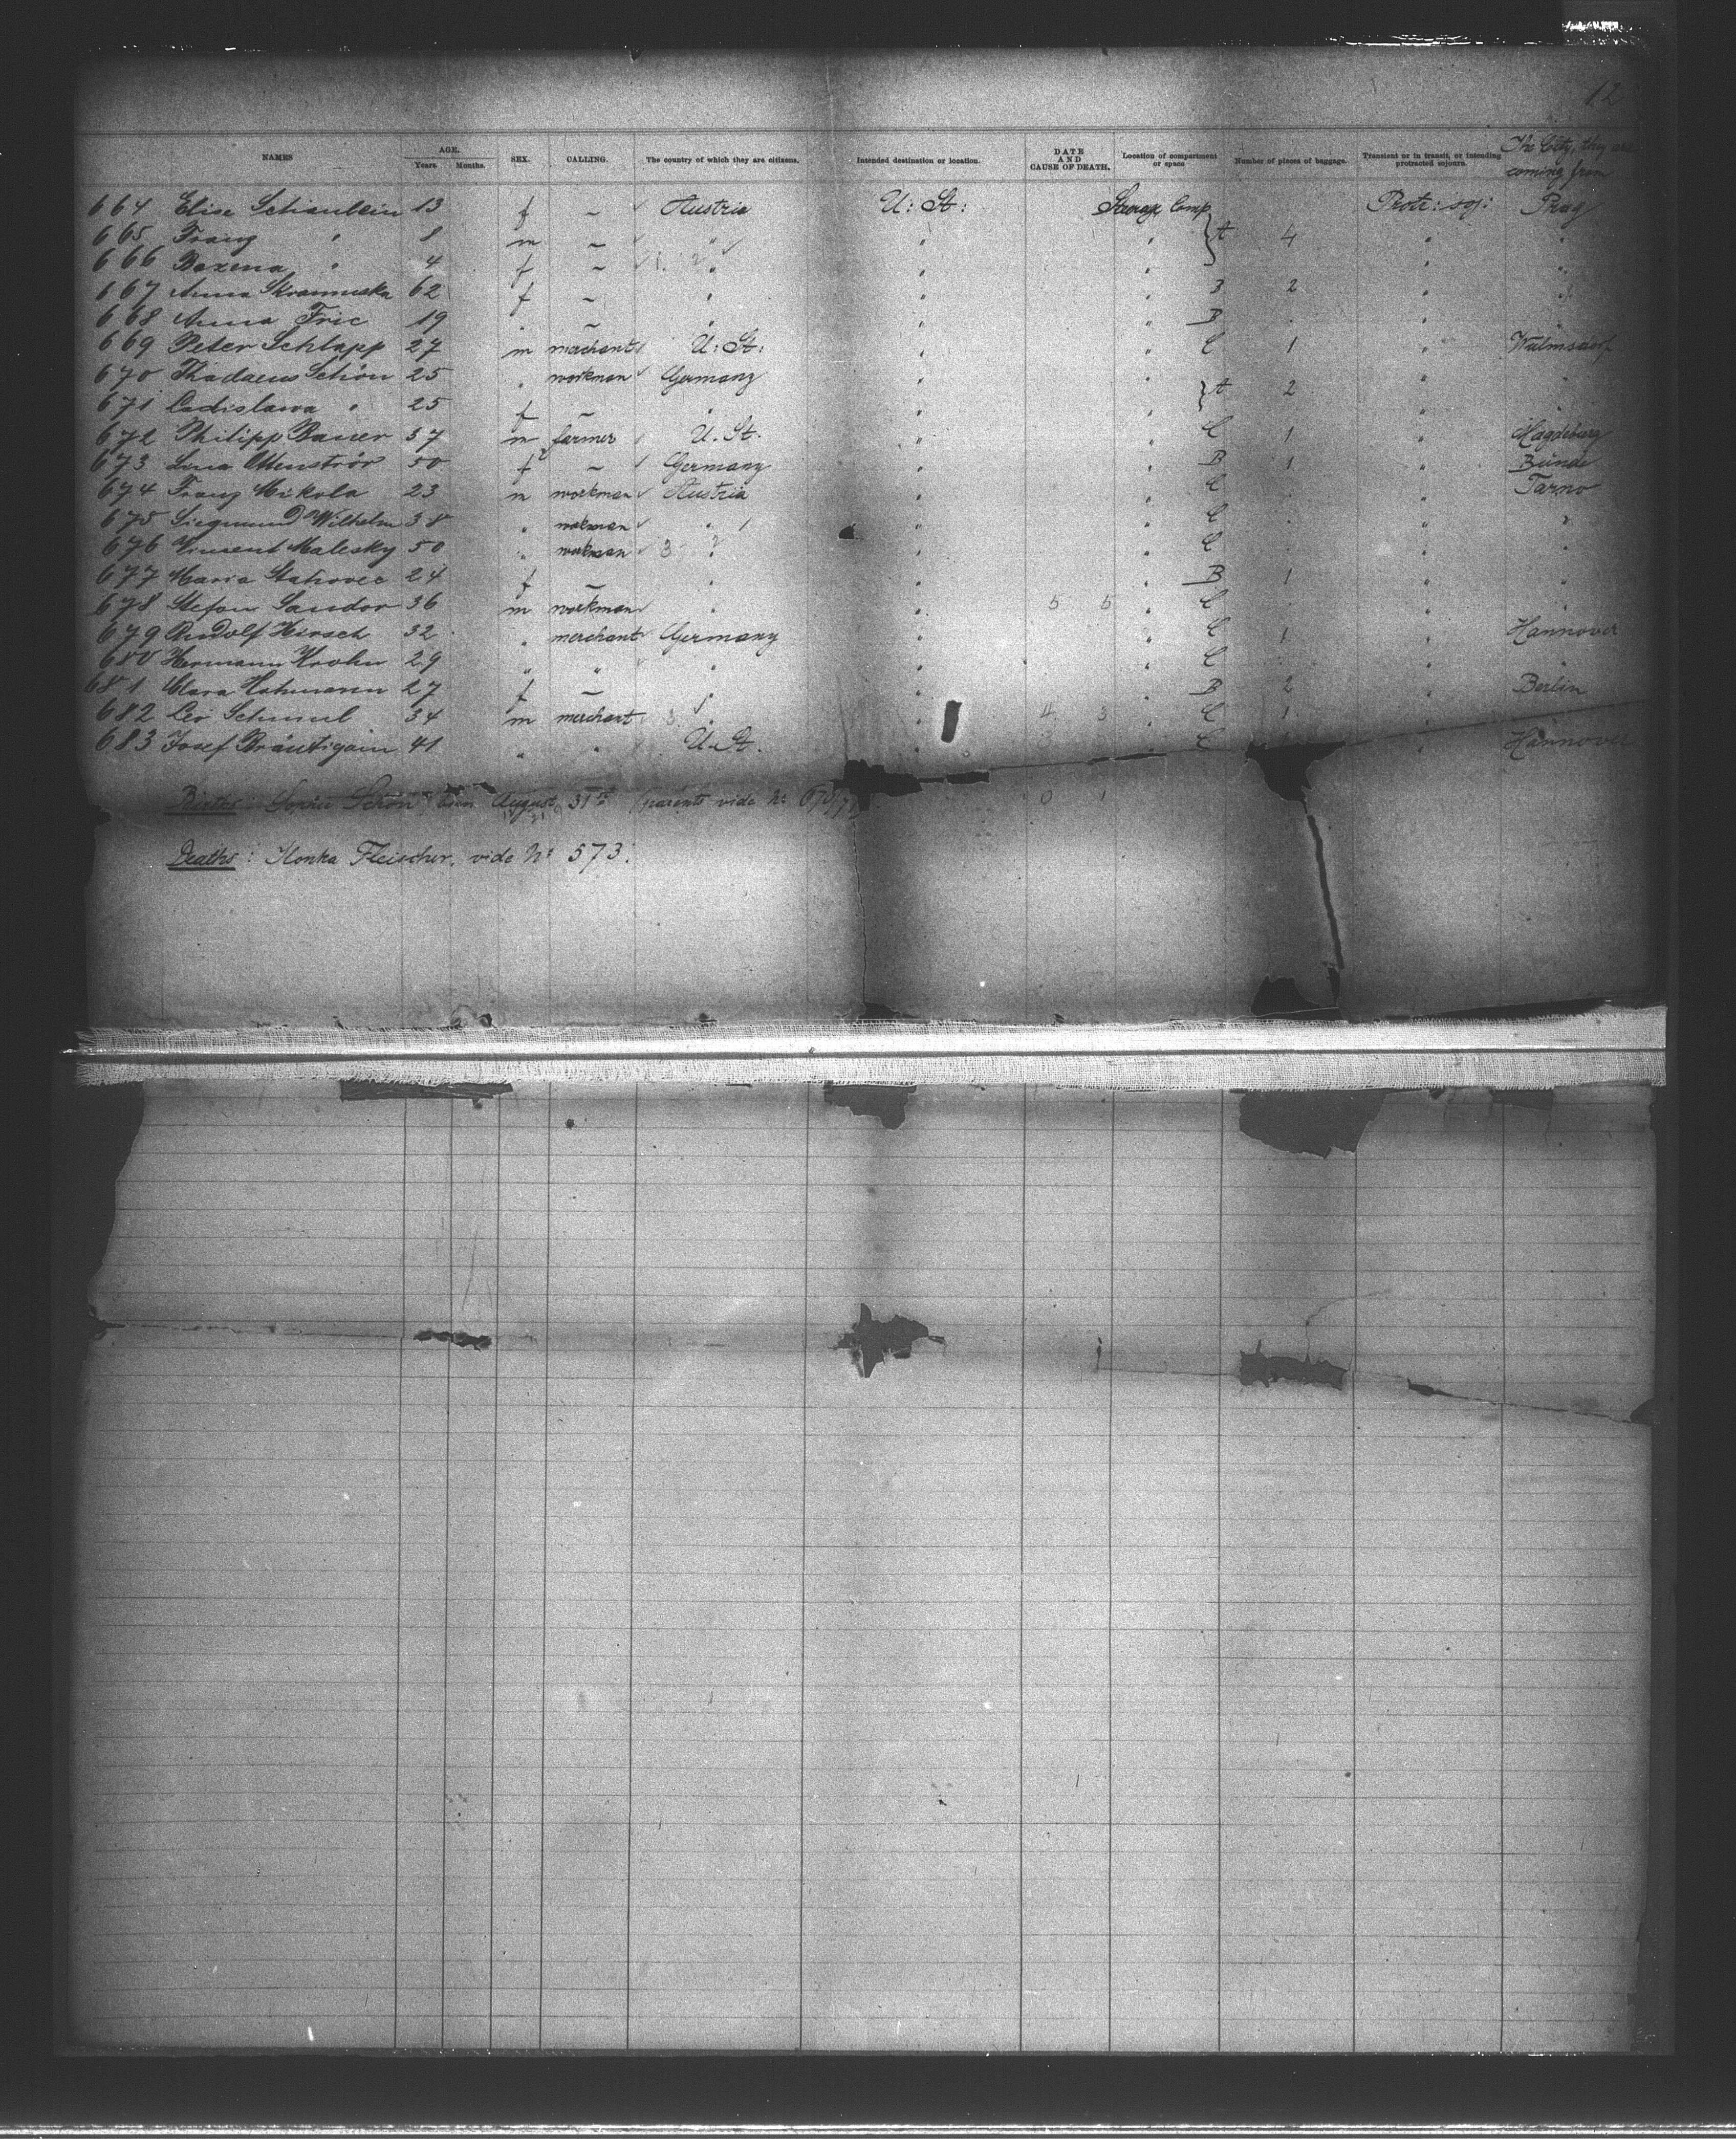 12
NAMES AGE. Years. Months. SEX. CALLING. The country of which they are citizens. Intended destination or location. DATE AND CAUSE OF DEATH. Location of compartment or space Number of pieces of baggage. Transient or in transit, or intending protracted sojourn. The City, they are coming from
664 Elise Schäublein 13 f – Austria U: St: Steerage Comp A Protr: soj: Prag
665 Franz " 8 m – " " " 4 " "
666 Bozena " 4 f – " " " " "
667 Anna 62 f – " " " B 2 " "
668 Anna Fric 19 " – " " " B " " "
669 Peter Schlapp 27 m merchant U: St: " " C 1 " Wulmsdorf
670 Thadaeus Schön 25 " workman Germany " " A 2 " "
671 Ladislawa " 25 f – " " " " "
672 Philipp Bauer 37 m farmer U. St. " " C 1 " Magdeburg
673 Lina 50 f – Germany " " B 1 " Bünde
674 Franz Mikola 23 m workman Austria " " C " " Tarno
675 Siegmund Wilhelm 38 " workman " " " C " " "
676 Vincent Malesky 50 " workman " " " C " " "
677 Maria Stahovec 24 f – " " " B 1 " "
678 Stefan Sandor 36 m workman " " 5 5 " C " " "
679 Rudolf Hirsch 32 " merchant Germany " " C 1 " Hannover
680 Hermann Krohn 29 " " " " " C " " "
681 Clara Hohmann 27 f – " " " B 2 " Berlin
682 Leo Schmul 34 m merchant " " 4 3 " C 1 " "
683 Josef Bräutigam 41 " " U. St. " " C " Hannover
Births: Schön born August 31st (parents vide No: 670/71)
Deaths: Ilonka Fleischer, vide No: 573.